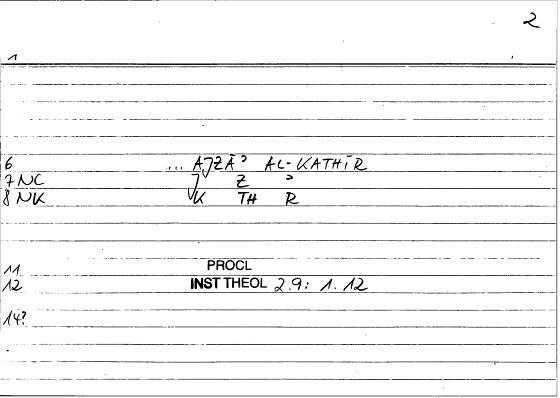 2
1
6 ... AJZĀʾ AL-KATHĪR
7 NC J Z ʾ
8 NK K TH R
11 PROCL
12 INST THEOL 2.9: 1.12
14?